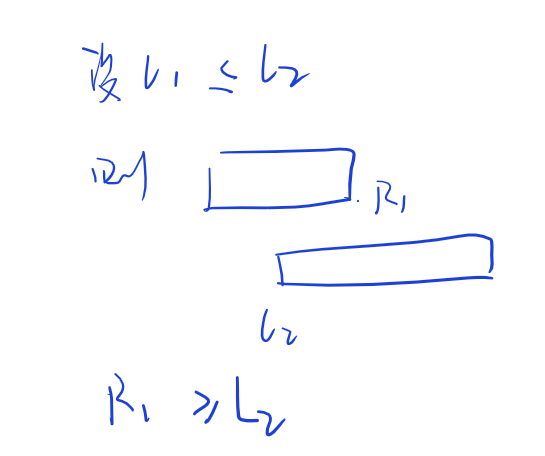 设 L1 ≤ L2
则
R1
L2
R1 ≥ L2